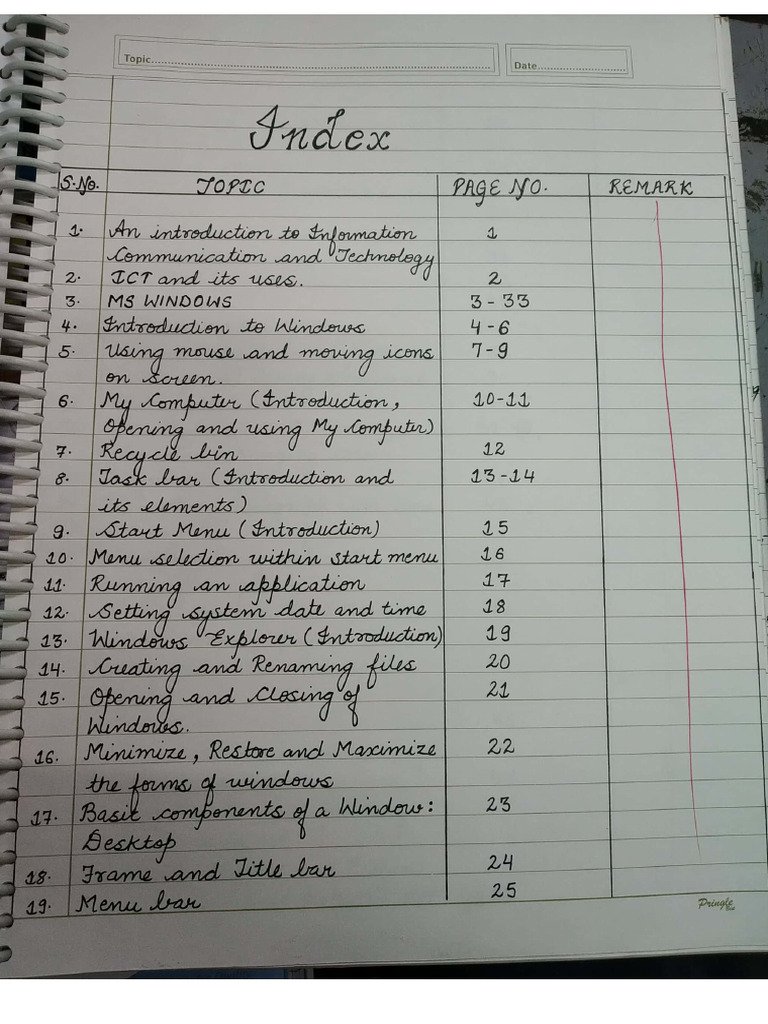 Topic..................................................................................... Date............................
Index
S.No. TOPIC PAGE NO. REMARK
1. An introduction to Information 1
Communication and Technology
2. ICT and its uses. 2
3. MS WINDOWS 3-33
4. Introduction to Windows 4-6
5. Using mouse and moving icons 7-9
on screen.
6. My Computer (Introduction, 10-11
Opening and using My Computer)
7. Recycle bin 12
8. Task bar (Introduction and 13-14
its elements)
9. Start Menu (Introduction) 15
10. Menu selection within start menu 16
11. Running an application 17
12. Setting system date and time 18
13. Windows Explorer (Introduction) 19
14. Creating and Renaming files 20
15. Opening and Closing of 21
Windows.
16. Minimize, Restore and Maximize 22
the forms of windows
17. Basic components of a Window: 23
Desktop
18. Frame and Title bar 24
19. Menu bar 25
Pringle